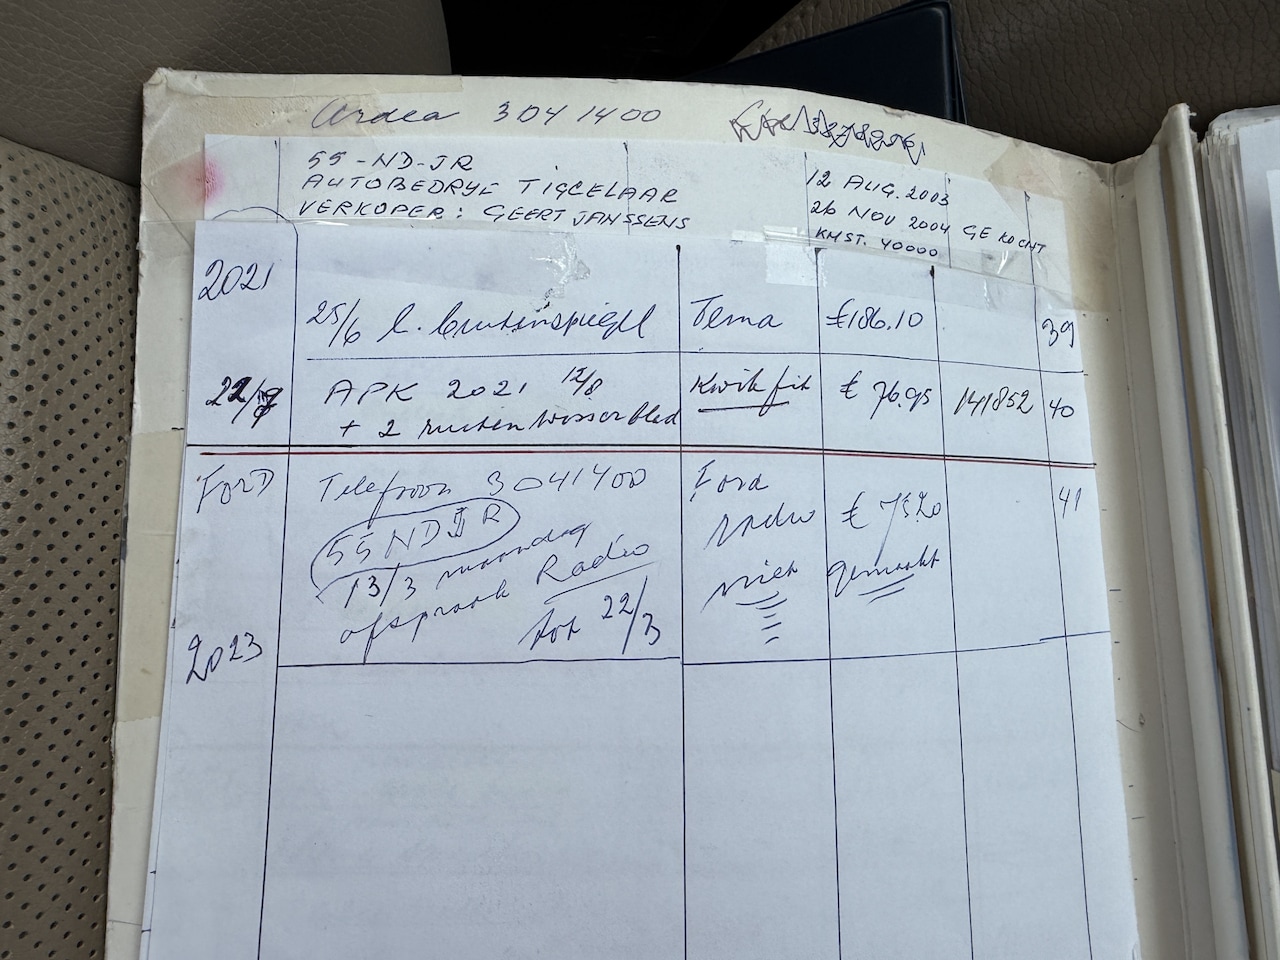 Ardea 304 1400
55-ND-JR
AUTOBEDRYF TIGCELAAR
VERKOPER: GEERT JANSSENS
12 AUG. 2003
26 NOV 2004 GEKOCHT
KMST. 40000
2021
25/6 l. buitenspiegel Tema €186.10 39
APK 2021 12/8 Kwik fit € 76.95 141852 40
+ 2 ruiten wisserblad
Ford Telefoon 3041400 Ford 41
55 NDJR radio € 75.20
13/3 maandag niet gemaakt
afspraak Radio
tot 22/3
2023